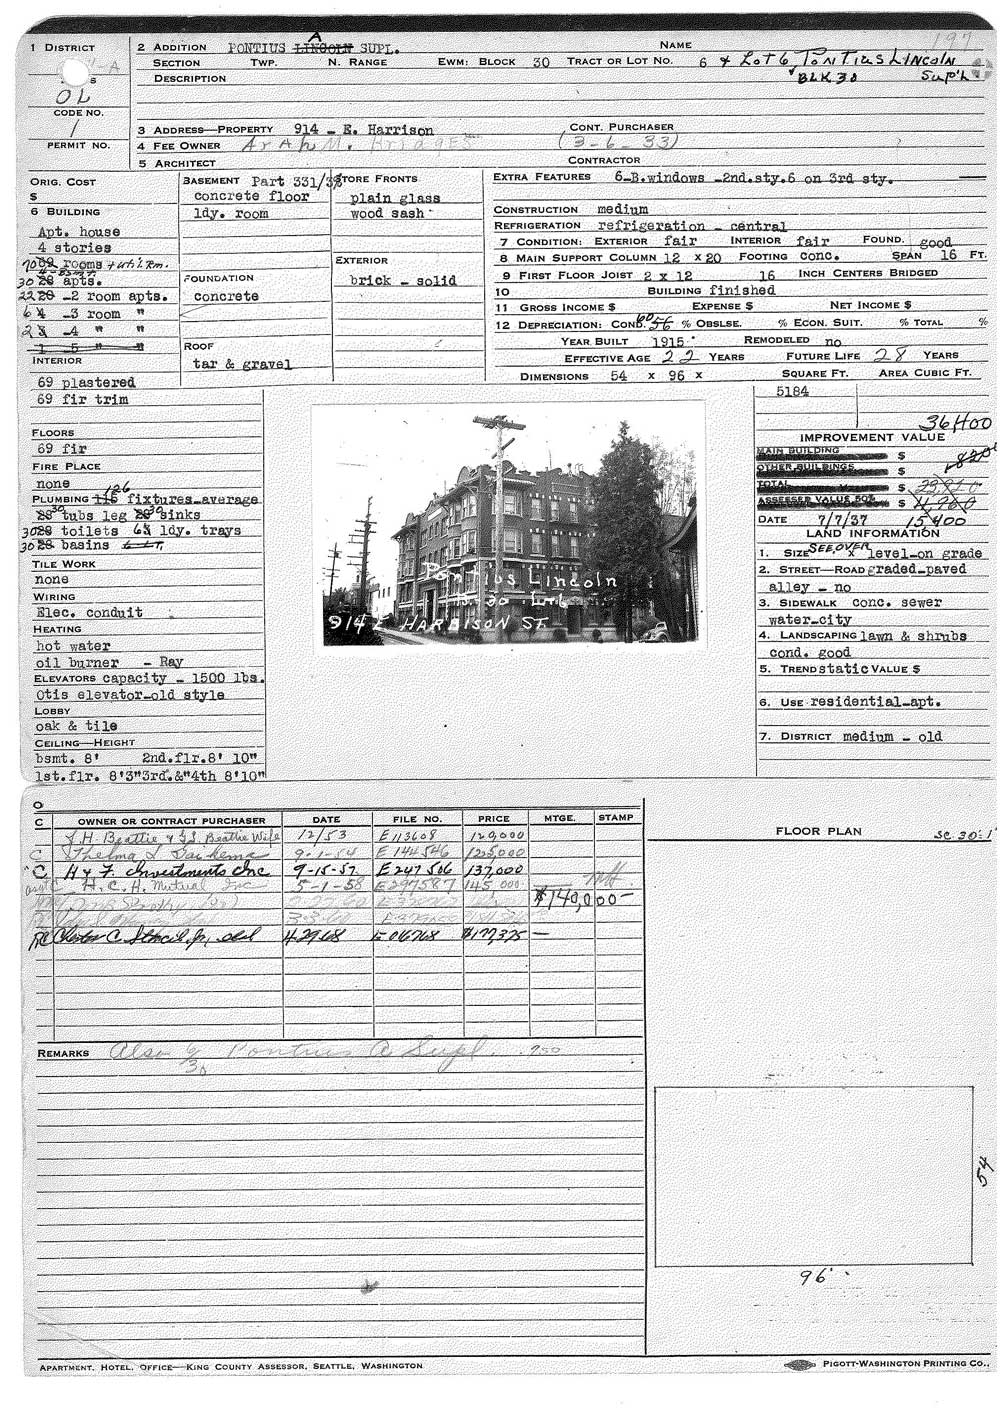 197
1 DISTRICT
2 ADDITION PONTIUS LINCOLN A SUPL. NAME
SECTION TWP. N. RANGE EWM: BLOCK 30 TRACT OR LOT NO. 6 & LOT 6, PONTIUS LINCOLN
BLK 30 Sup'l.
DESCRIPTION
OL
CODE NO.
1
PERMIT NO.
3 ADDRESS—PROPERTY 914 - E. Harrison CONT. PURCHASER
4 FEE OWNER Arah M. Bridges (3-6-33)
5 ARCHITECT CONTRACTOR
ORIG. COST
$
6 BUILDING
Apt. house
4 stories
rooms + Util. Rm.
4-BSMT.
30 28 apts.
22 20 -2 room apts.
6 4 -3 room "
2 3 -4 " "
1 5 " "
INTERIOR
69 plastered
69 fir trim
FLOORS
69 fir
FIRE PLACE
none
PLUMBING 115 126 fixtures-average
28 30 tubs leg 28 30 sinks
30 28 toilets 6 ldy. trays
30 28 basins
TILE WORK
none
WIRING
Elec. conduit
HEATING
hot water
oil burner - Ray
ELEVATORS capacity - 1500 lbs.
Otis elevator-old style
LOBBY
oak & tile
CEILING—HEIGHT
bsmt. 8' 2nd.flr.8' 10"
1st.flr. 8'3"3rd.&"4th 8'10"
BASEMENT Part 331/3%
concrete floor
ldy. room
FOUNDATION
concrete
ROOF
tar & gravel
STORE FRONTS
plain glass
wood sash
EXTERIOR
brick - solid
EXTRA FEATURES 6-B.windows -2nd.sty.6 on 3rd sty.
CONSTRUCTION medium
REFRIGERATION refrigeration - central
7 CONDITION: EXTERIOR fair INTERIOR fair FOUND. good
8 MAIN SUPPORT COLUMN 12 X 20 FOOTING conc. SPAN 16 FT.
9 FIRST FLOOR JOIST 2 x 12 16 INCH CENTERS BRIDGED
10 BUILDING finished
11 GROSS INCOME $ EXPENSE $ NET INCOME $
12 DEPRECIATION: COND. 60 56 % OBSLSE. % ECON. SUIT. % TOTAL %
YEAR BUILT 1915 REMODELED no
EFFECTIVE AGE 22 YEARS FUTURE LIFE 28 YEARS
DIMENSIONS 54 X 96 X SQUARE FT. AREA CUBIC FT.
5184
36400
IMPROVEMENT VALUE
MAIN BUILDING $
OTHER BUILDINGS $
TOTAL $
ASSESSED VALUE 50% $
DATE 7/7/37 15400
LAND INFORMATION
1. SIZE SEE OVER X level-on grade
2. STREET—ROAD graded-paved
alley - no
3. SIDEWALK conc. sewer
water-city
4. LANDSCAPING lawn & shrubs
cond. good
5. TREND static VALUE $
6. USE residential-apt.
7. DISTRICT medium - old
Pontius Lincoln
914 E HARRISON ST.
O
C OWNER OR CONTRACT PURCHASER DATE FILE NO. PRICE MTGE. STAMP
J.H. Beattie & Beattie Wife 12/53 E113608 120,000
C Thelma L 9-1-54 E144546 125,000
C H & F. Investments Inc 9-15-57 E247506 137,000
H.C.H. Mutual Inc 5-1-58 E297587 145,000
$140,000-
3-3-60
4-29-68 E06768 $177,325 —
REMARKS Also 6/30 Pontius A Supl
FLOOR PLAN SC. 30:1"
54
96'
APARTMENT, HOTEL, OFFICE—KING COUNTY ASSESSOR, SEATTLE, WASHINGTON
PIGOTT-WASHINGTON PRINTING CO.,